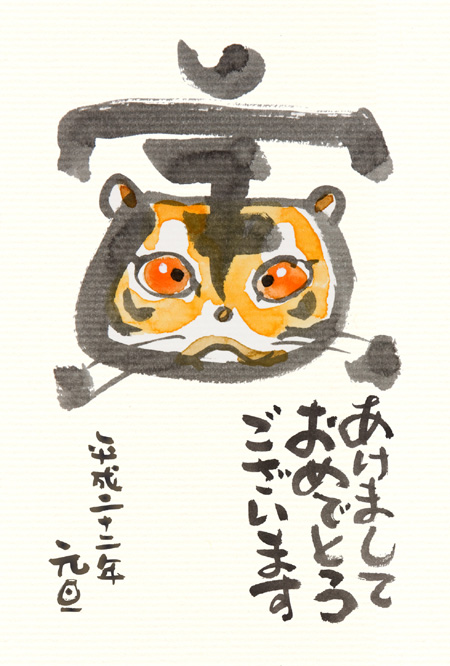 寅
あけまして
おめでとう
ございます
平成二十二年
元旦